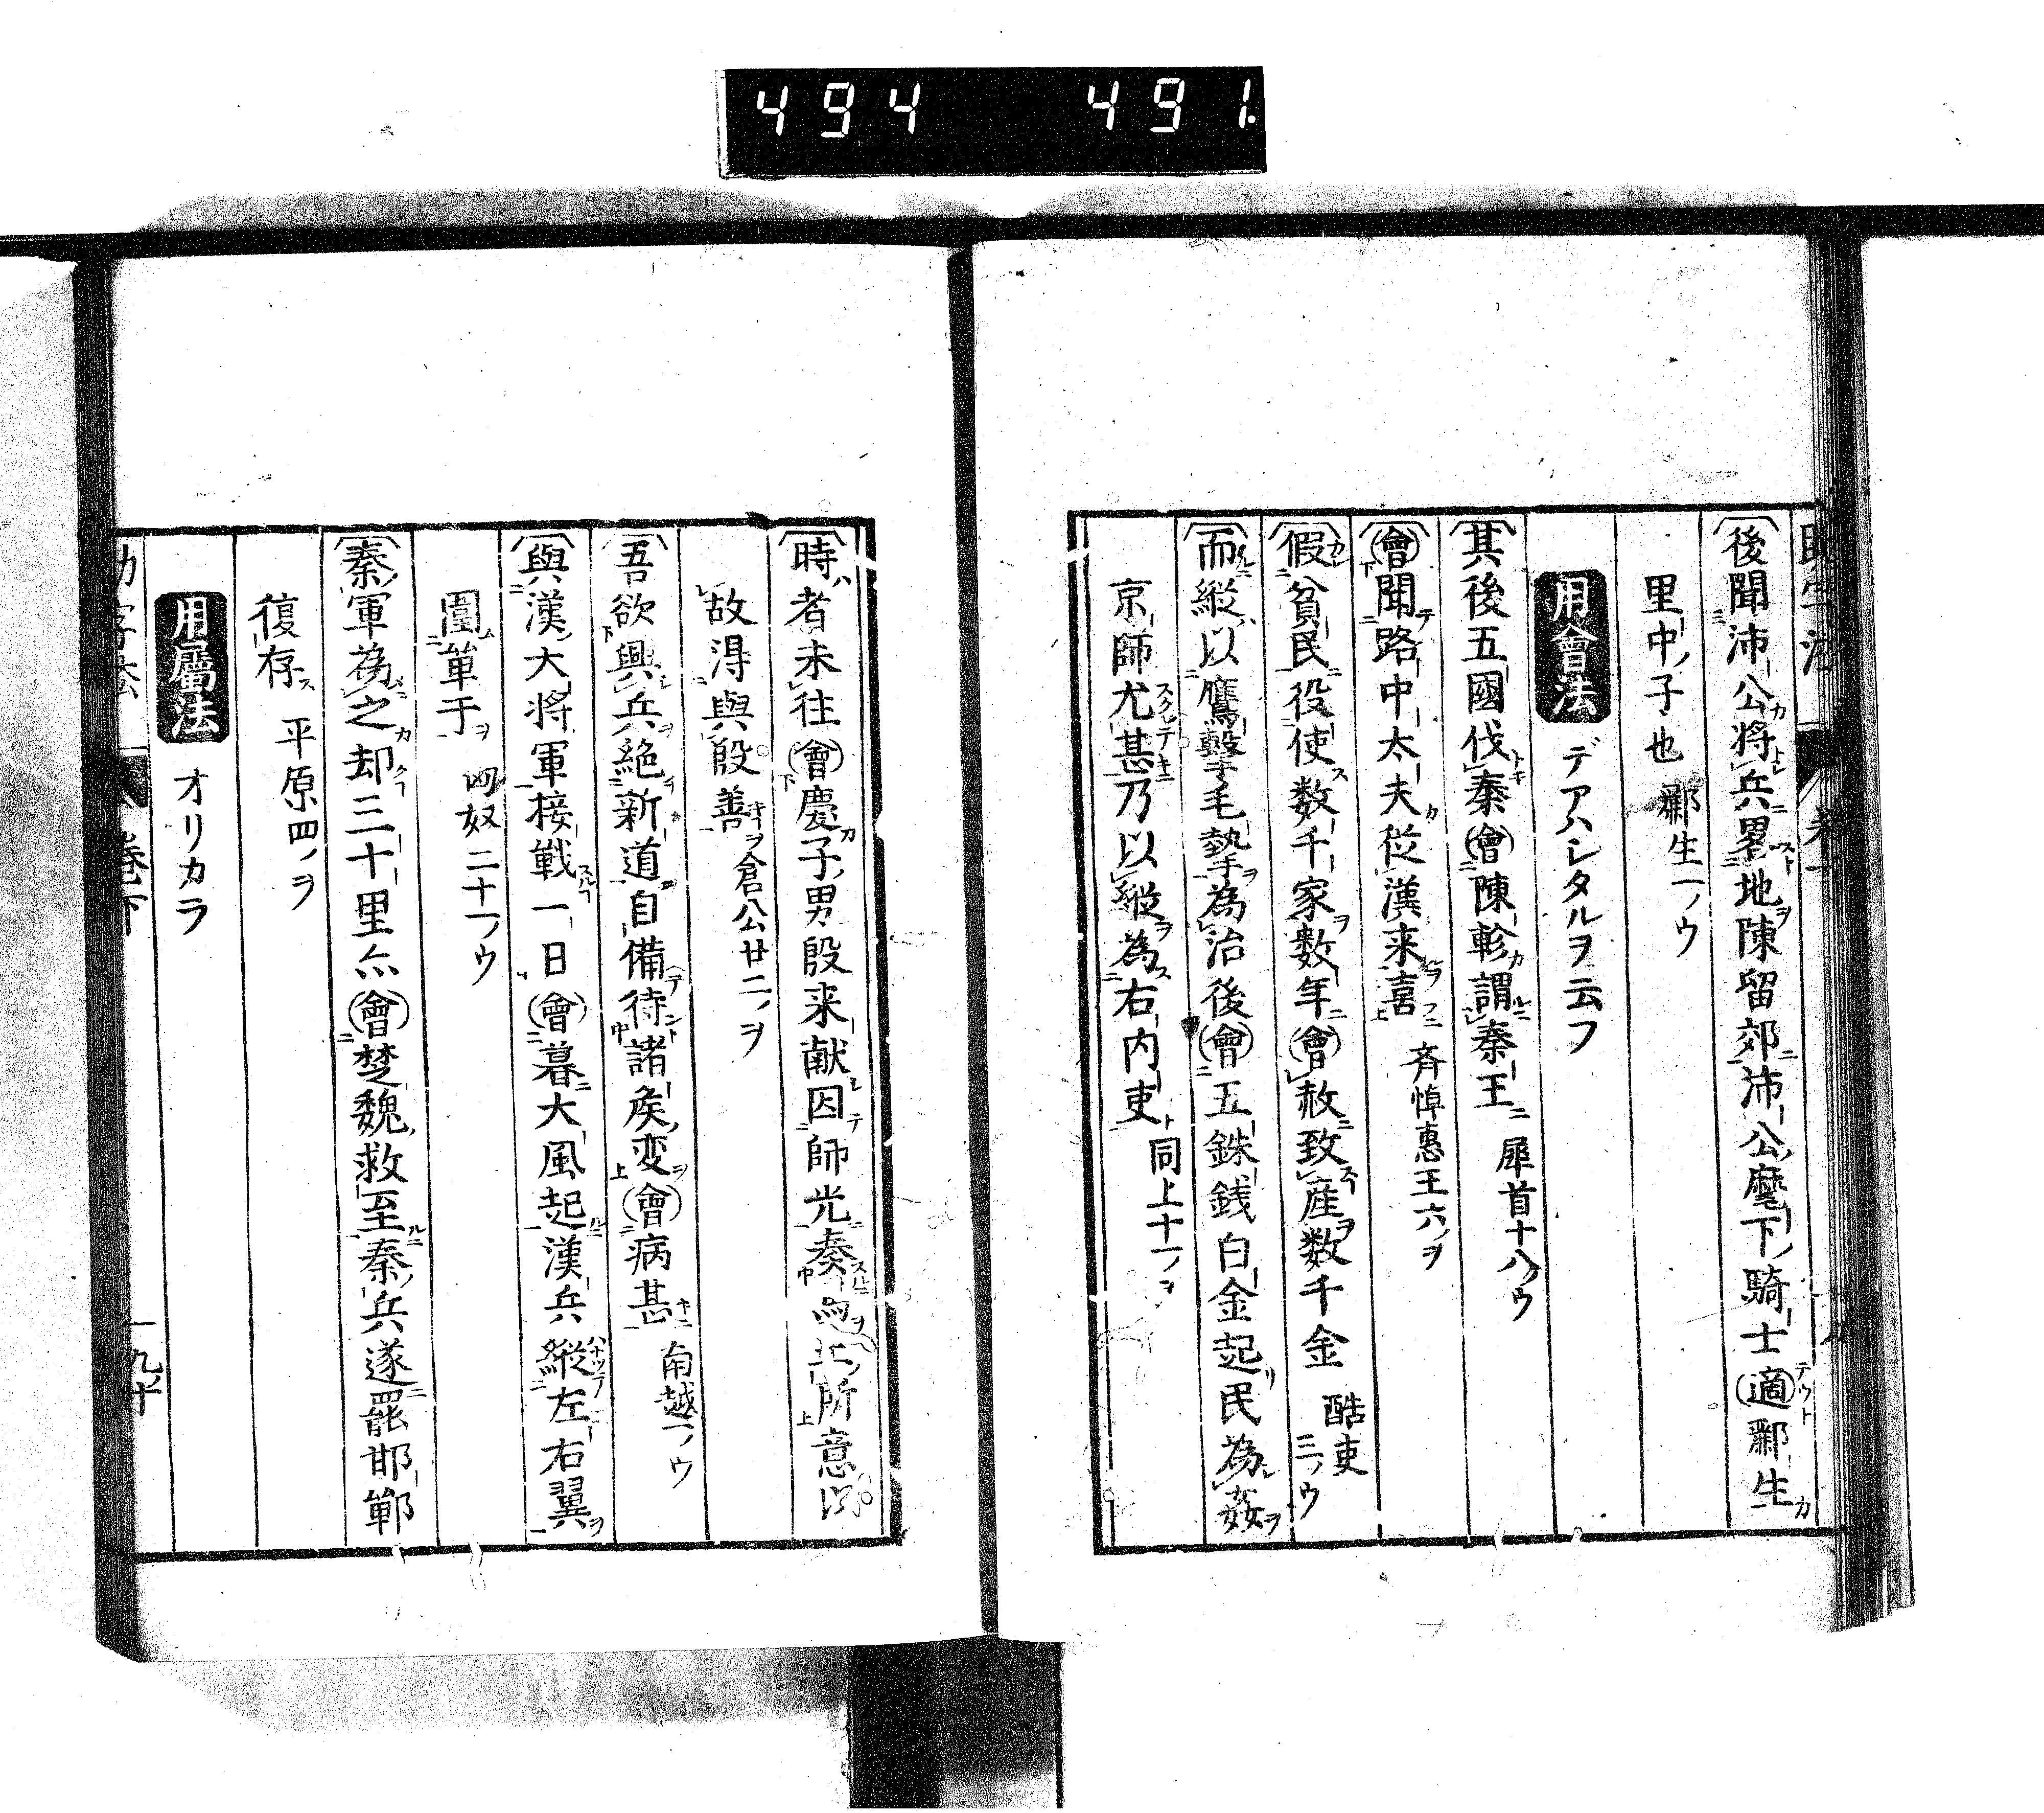 494 491.
後聞沛公將兵畧地陳留郊沛公麾下騎士適酈生
里中子也 酈生一ノウ
用會法 デアハシタルヲ云フ
其後五國伐秦會陳軫謂秦王 犀首十八ノウ
會聞路中太夫從漢来喜 斉悼惠王六ノヲ
假貧民役使数千家数年會赦致産数千金 酷吏三ノウ
而縱以鷹擊毛摯為治後會五銖銭白金起民為姦
京師尤甚乃以縱為右内吏 同上十一ノヲ
時者未往會慶子男殷来献因師光奏 所意
故淂與殷善 倉公廿二ノヲ
吾欲興兵絶新道自備待諸矦変會病甚 南越一ノウ
與漢大将軍接戦一日會暮大風起漢兵縱左右翼
圍単于 匈奴二十一ノウ
秦軍為之却三十里亦會楚魏救至秦兵遂罷邯鄲
復存 平原四ノヲ
用屬法 オリカラ
助字法 巻下 一九十